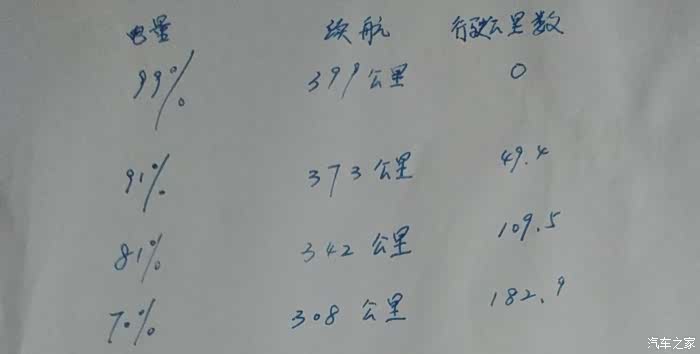 电量 续航 行驶公里数
99% 399公里 0
91% 373公里 49.4
81% 342公里 109.5
70% 308公里 182.9
汽车之家